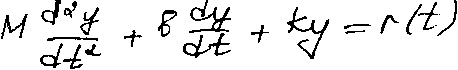 M d²y/dt² + B dy/dt + ky = r(t)